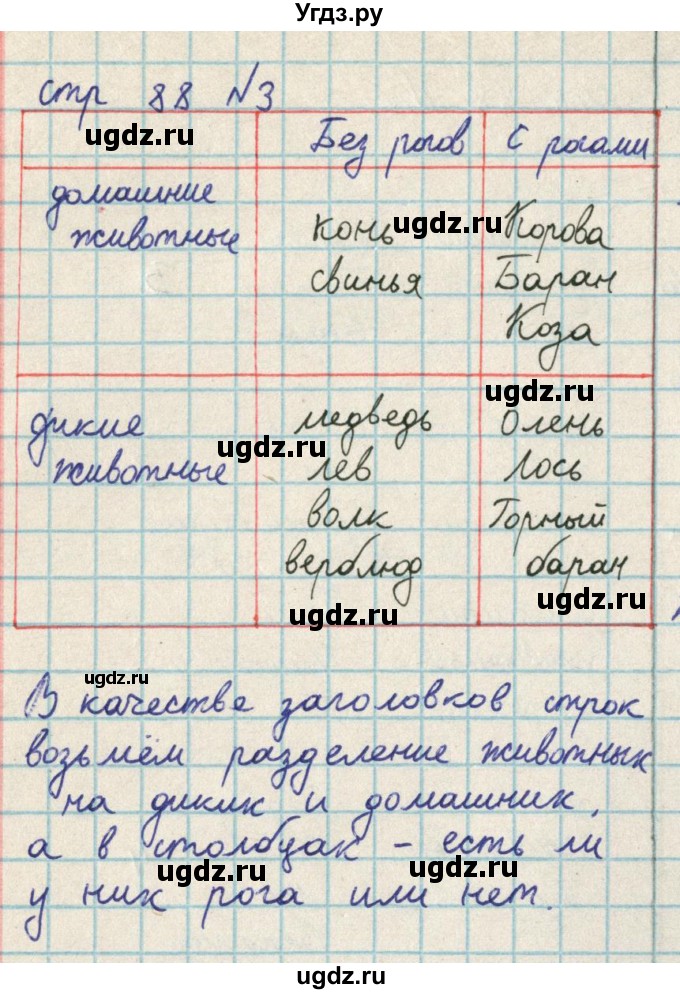 Угдз.ру
стр 88 №3
ugdz.ru Без рогов С рогами
домашние
животные
конь ugdz.ru Корова
свинья Баран
Коза
ugdz.ru
дикие медведь Олень
животные ugdz.ru лев Лось
волк Горный
верблюд баран
ugdz.ru ugdz.ru
ugdz.ru
В качестве заголовков строк
возьмём разделение животных
на диких и домашних,
а в столбцах - есть ли
ugdz.ru ugdz.ru
у них рога или нет.
ugdz.ru